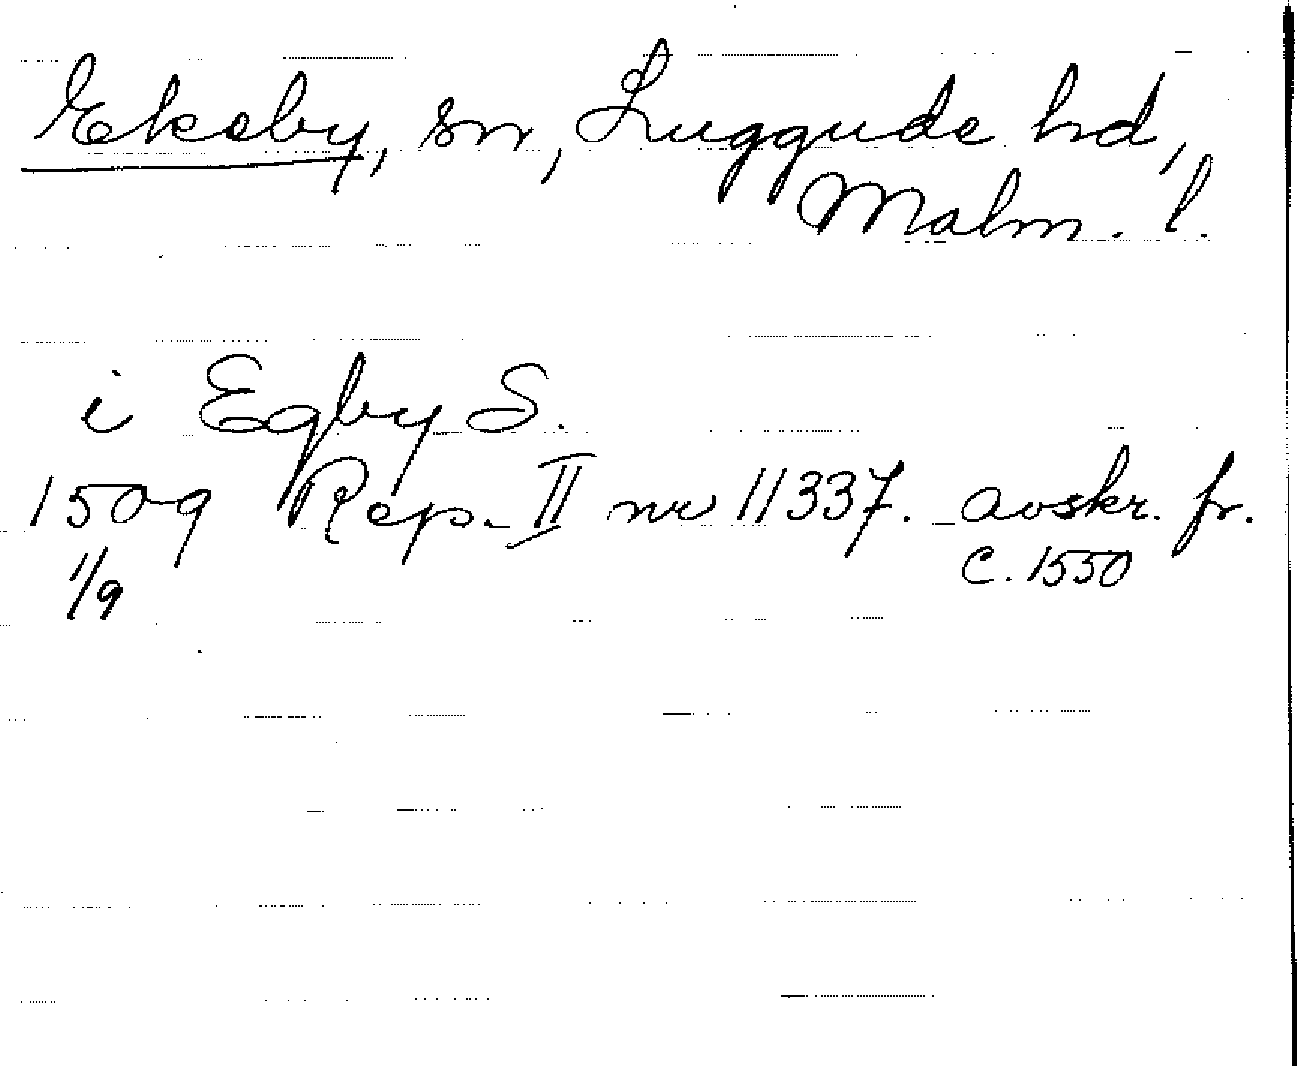 Ekeby, sn, Luggude hd,
Malm. l.
i Egby S.
1509 Rep. II nr 11337. avskr. fr.
1/9 c. 1550